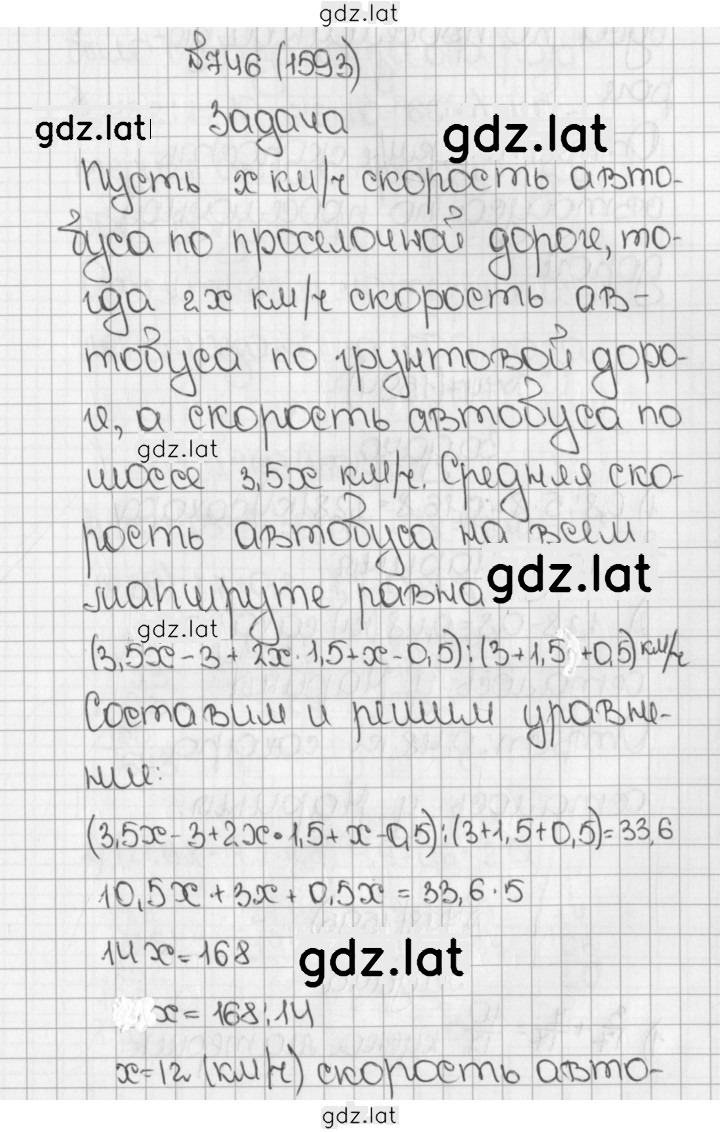 gdz.lat
№746 (1593)
gdz.lat
Задача
gdz.lat
Пусть x км/ч скорость авто-
буса по проселочной дороге, то-
гда 2x км/ч скорость ав-
тобуса по грунтовой доро-
ге, а скорость автобуса по
gdz.lat
шоссе 3,5x км/ч. Средняя ско-
рость автобуса на всем
gdz.lat
маршруте равна
gdz.lat
(3,5x-3+2x·1,5+x-0,5):(3+1,5)+0,5) км/ч
Составим и решим уравне-
нии:
(3,5x-3+2x·1,5+x-0,5):(3+1,5+0,5)=33,6
10,5x+3x+0,5x=33,6·5
14x=168
gdz.lat
x=168:14
x=12 (км/ч) скорость авто-
gdz.lat